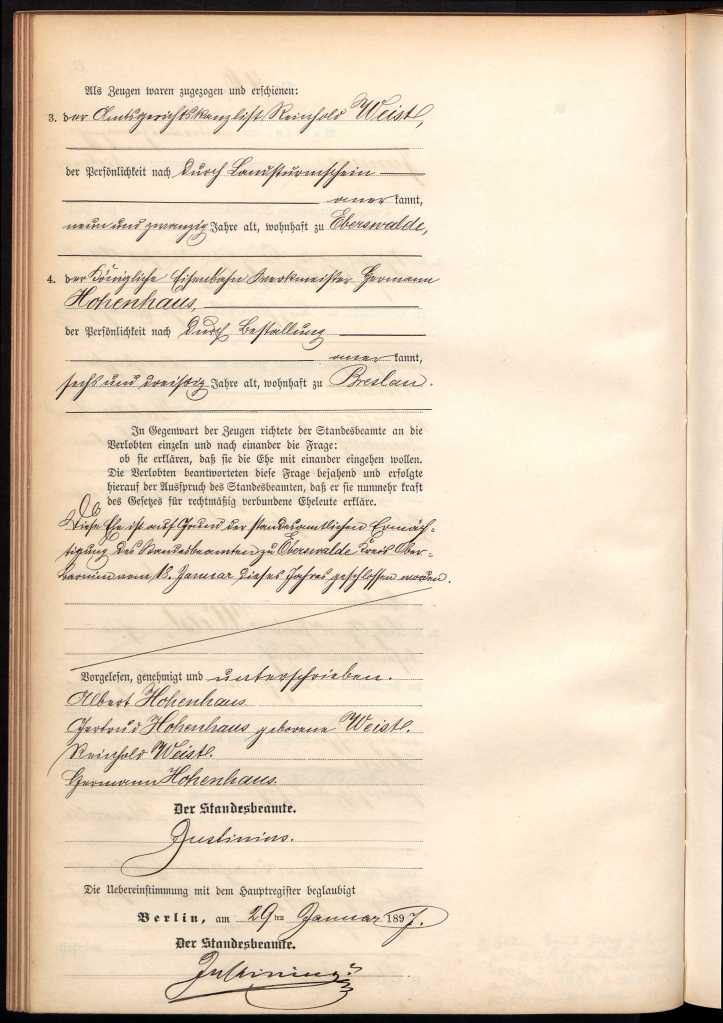 Als Zeugen waren zugezogen und erschienen:
3. der Amtsgerichtskanzlist Reinhold Weist,
der Persönlichkeit nach durch Landsturmschein
aner kannt,
neun und zwanzig Jahre alt, wohnhaft zu Eberswalde,
4. der Königliche Eisenbahn Werkmeister Hermann
Hohenhaus,
der Persönlichkeit nach durch Bestallung
aner kannt,
sechs und dreißig Jahre alt, wohnhaft zu Breslau.
In Gegenwart der Zeugen richtete der Standesbeamte an die
Verlobten einzeln und nach einander die Frage:
ob sie erklären, daß sie die Ehe mit einander eingehen wollen.
Die Verlobten beantworteten diese Frage bejahend und erfolgte
hierauf der Ausspruch des Standesbeamten, daß er sie nunmehr kraft
des Gesetzes für rechtmäßig verbundene Eheleute erkläre.
Diese Ehe ist auf Grund der standesamtlichen Ermäch-
tigung des Standesbeamten zu Eberswalde Kreis Ober-
barnim vom 18. Januar dieses Jahres geschlossen worden.
Vorgelesen, genehmigt und unterschrieben.
Albert Hohenhaus
Gertrud Hohenhaus geborene Weist.
Reinhold Weist.
Hermann Hohenhaus.
Der Standesbeamte.
Justinius.
Die Uebereinstimmung mit dem Hauptregister beglaubigt
Berlin, am 29ten Januar 1897.
Der Standesbeamte.
Justinius